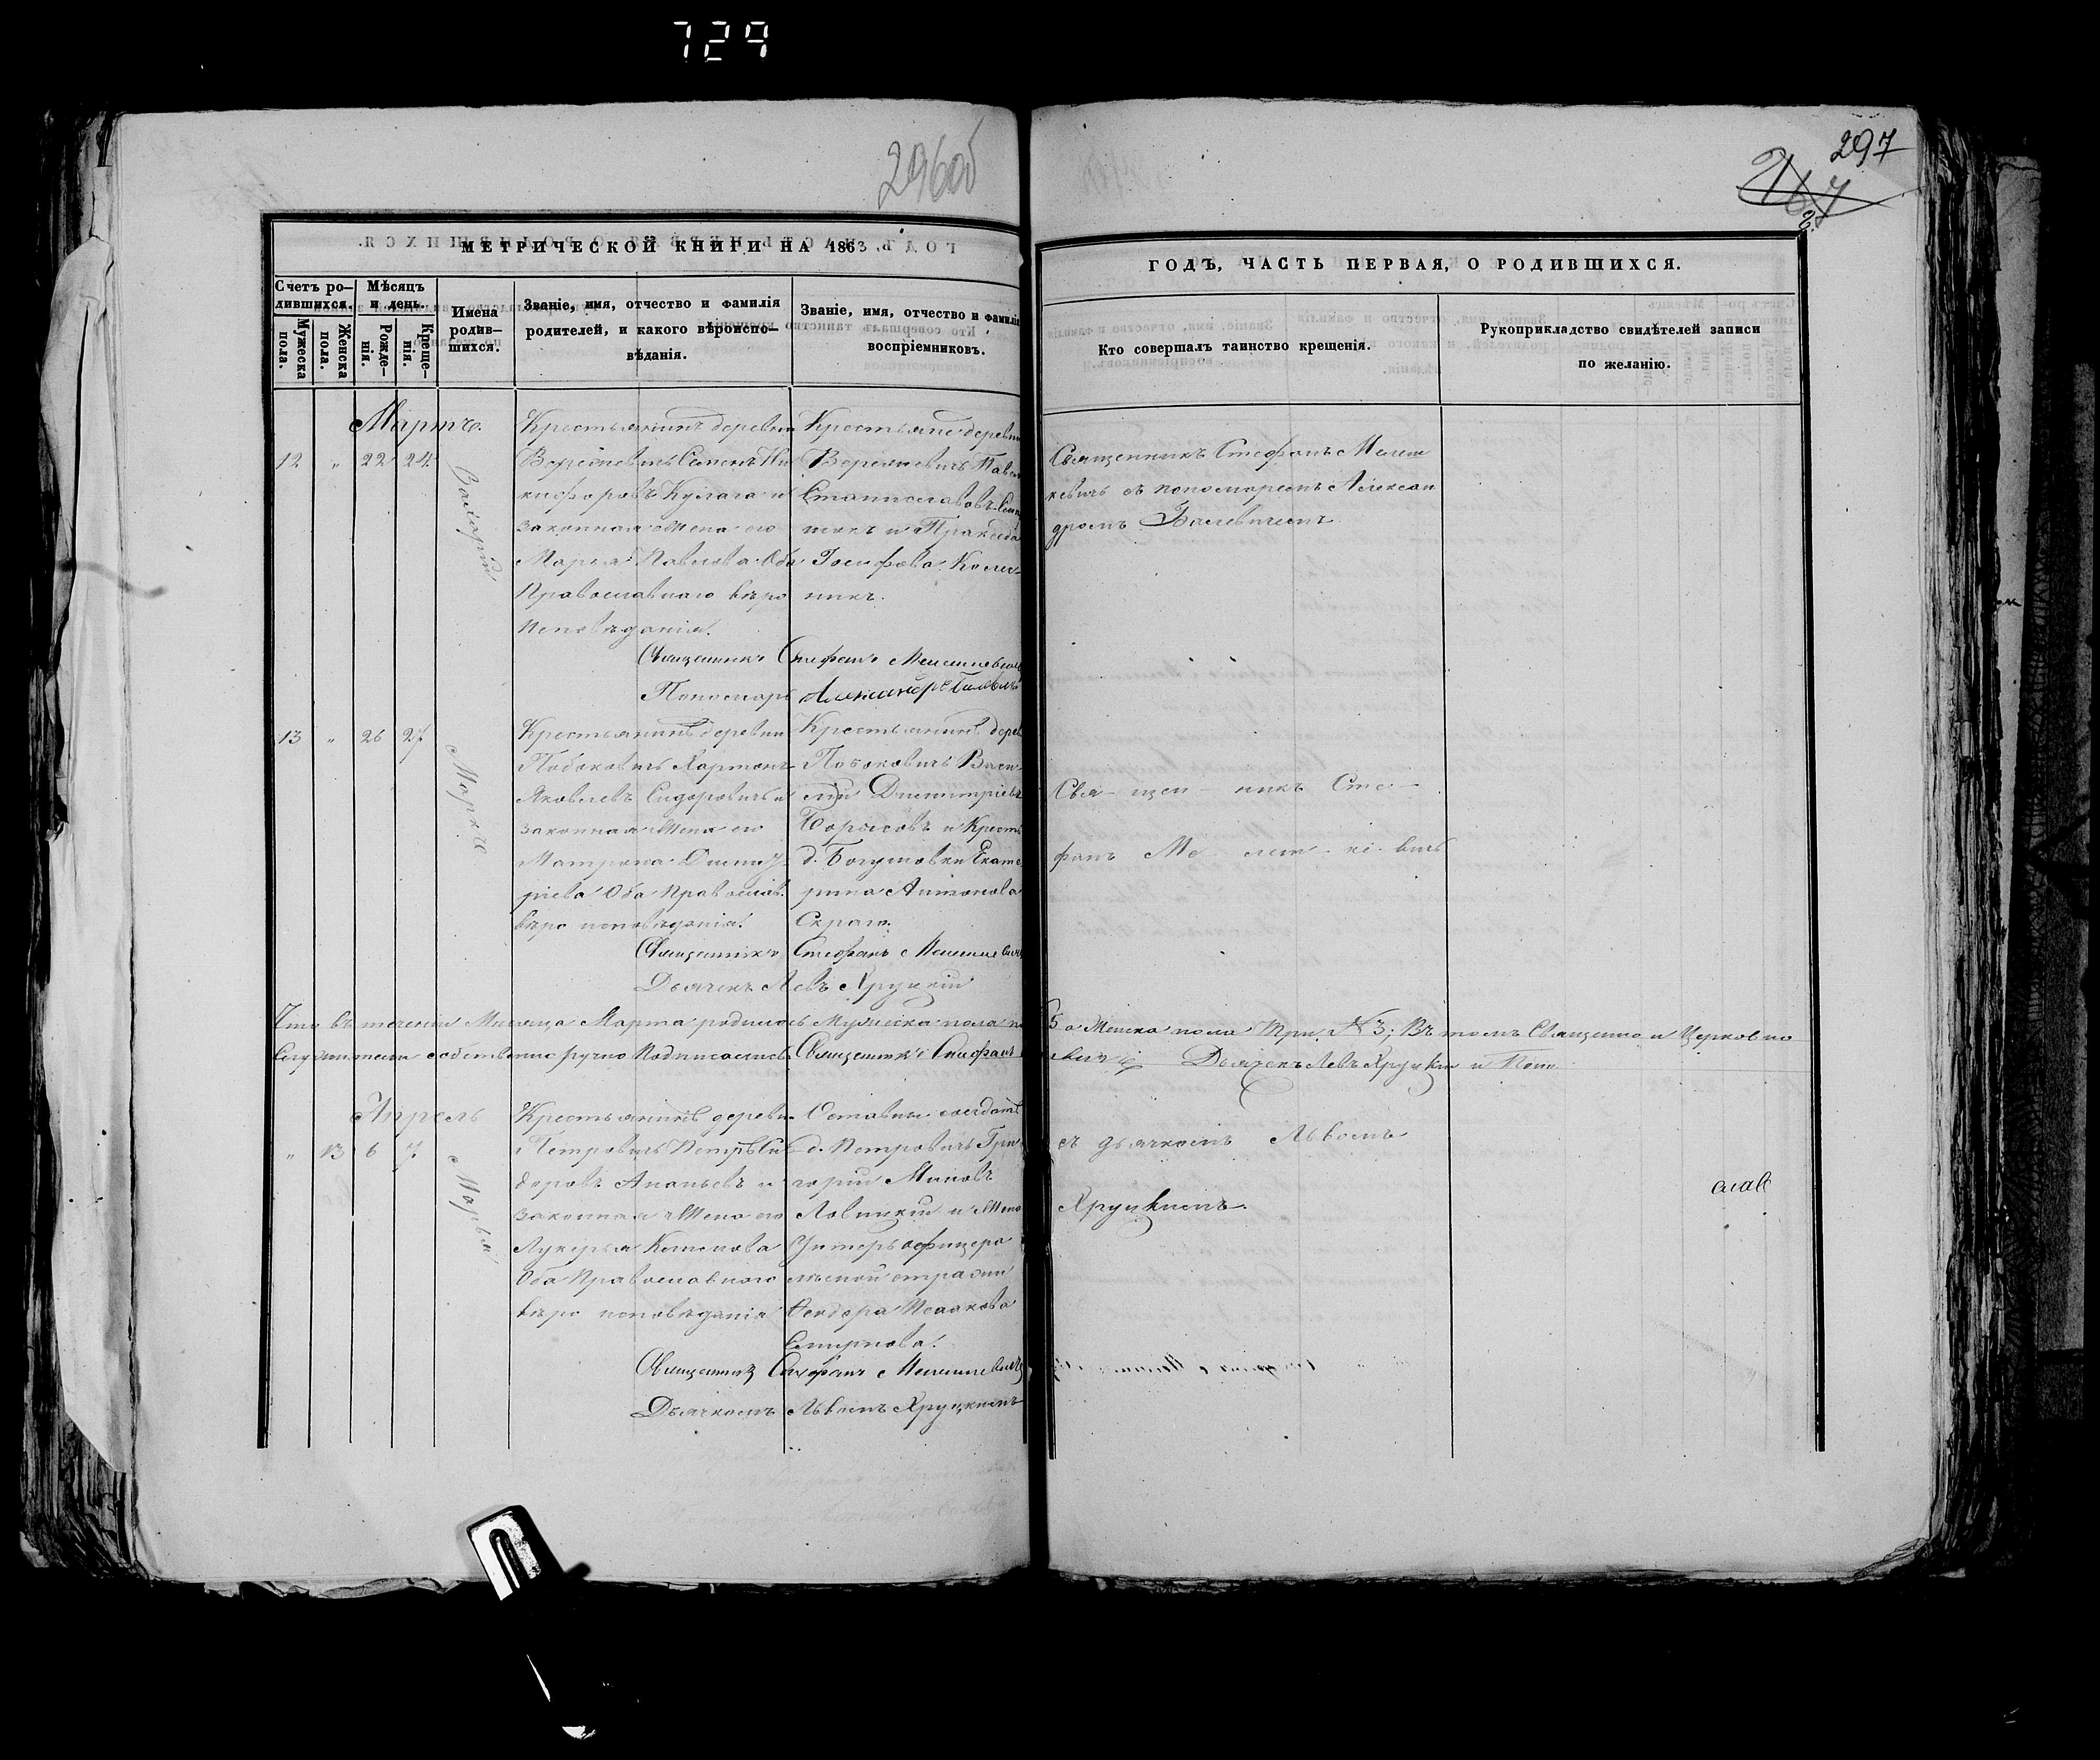 729
296об
297
МЕТРИЧЕСКОЙ КНИГИ НА 1863
ГОДЪ, ЧАСТЬ ПЕРВАЯ, О РОДИВШИХСЯ.
Счетъ ро-
дившихся.
Мужеска пола.
Женска пола.
Мѣсяцъ
и день.
Рожде-
нія.
Креще-
нія.
Имена
родив-
шихся.
Званіе, имя, отчество и фамилія
родителей, и какого вѣроиспо-
вѣданія.
Званіе, имя, отчество и фамилія
воспріемниковъ.
Кто совершалъ таинство крещенія.
Рукоприкладство свидѣтелей записи
по желанію.
Мартъ.
12 " 22 24
Крестьянинъ деревни
Семенъ Ни
кифоровъ Кулага и
законная жена его
Марья Павлова Оба
Православнаго вѣро
исповѣданія.
Крестьяне деревни
Павелъ
Станиславовъ
и Пракседа
Іосифова
никъ.
Священникъ Стефанъ Мелеш
кевичъ съ пономаремъ Алексан
дромъ Балевичемъ
Священникъ Стефанъ
Пономарь Александръ
13 " 26 27
Марко
Крестьянинъ деревни
Побоковичъ Хартонъ
Яковлевъ Сидоровичъ и
законная жена его
Матрона Димит
ріева Оба Православ.
вѣро исповѣданія.
Крестьянинъ дерев
Побоковичъ Васи
лій Димитріевъ
Борисовъ и Крест
д. Богушовки Екате
рина Антонова
Скраго.
Свя- щен - никъ Сте -
фанъ Ме леш - ке - вичъ
Священникъ Стефанъ
Дьячекъ Левъ Хруцкій
Что въ теченіи Мѣсяца Марта родилось Мужеска пола
а Женска пола Три №3; Въ томъ Священно и Церковно
служители собственноручно Подписались Священникъ Стефанъ
Дьячекъ Левъ Хруцкій и Поно
Апрель
" 13 6 7
Марья
Крестьянинъ деревн.
Петровичъ Петръ Си
доровъ Ананьевъ и
законная жена его
Лукерья
Оба Православнаго
вѣро исповѣданія
д. Петровичъ Гри
горій
и жена
Унтеръ офицера
стражи
Феодора Исаакова
Смирнова.
съ дьячкомъ Львомъ
Хруцкимъ.
слав
Священникъ Стефанъ
Дьячкомъ Львомъ Хруцкимъ